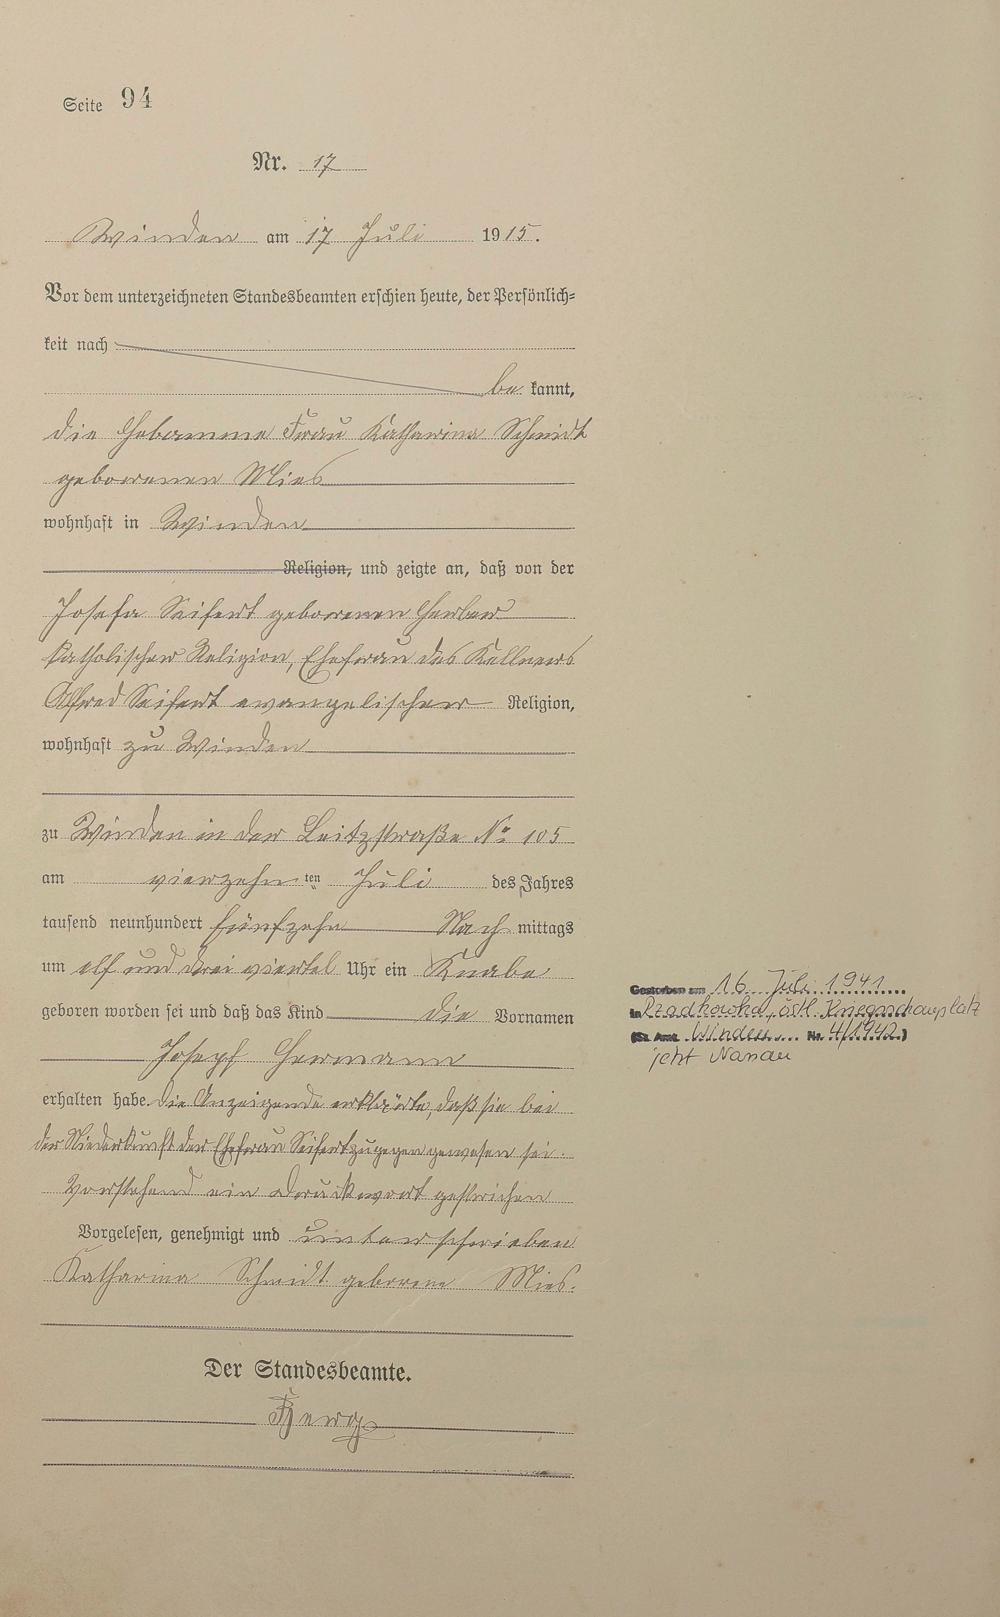 Seite 94
Nr. 17
Winden am 17 Juli 1915.
Vor dem unterzeichneten Standesbeamten erschien heute, der Persönlich=
keit nach
be kannt,
die Hebamme Frau Katharina Schmidt
geborenen Mies
wohnhaft in Winden
Religion, und zeigte an, daß von der
Josefa Seifert geborenen Gerber
katholischer Religion, Ehefrau des Kellners
Alfred Seifert evangelischer Religion,
wohnhaft zu Winden
zu Winden in der Leitzstraße No 105
am vierzehn ten Juli des Jahres
tausend neunhundert fünfzehn Nach mittags
um elf und drei viertel Uhr ein Knabe
geboren worden sei und daß das Kind die Vornamen
Joseph Hermann
erhalten habe. Die Anzeigende erklärte, daß sie bei
der Niederkunft der Ehefrau Seifert zugegen gewesen sei.
Vorstehend ein Druckwort gestrichen
Vorgelesen, genehmigt und unterschrieben
Katharina Schmidt geborene Mies.
Der Standesbeamte.
Gestorben am 16. Juli 1941
in östl. Kriegsschauplatz
(St. Amt Winden Nr. 4/1942)
jetzt Nassau